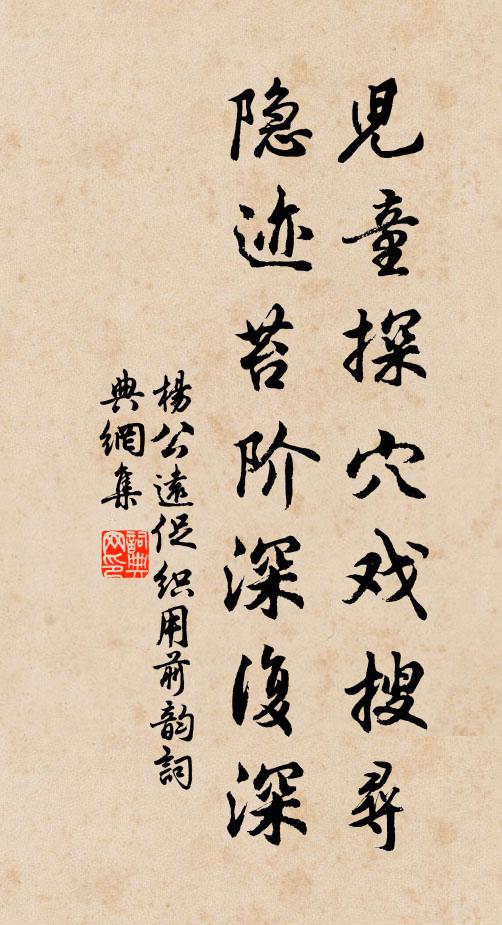 兒童探穴戏搜尋
隐迹苔阶深復深
楊公遠促织用前韵詞
典網集
詞典
网印